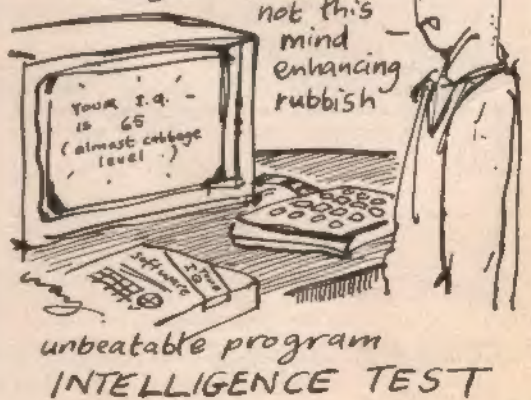 not this
mind
enhancing
rubbish
Your I.Q. -
is 65
(almost cabbage
level.)
Software
I.Q.
unbeatable program
INTELLIGENCE TEST